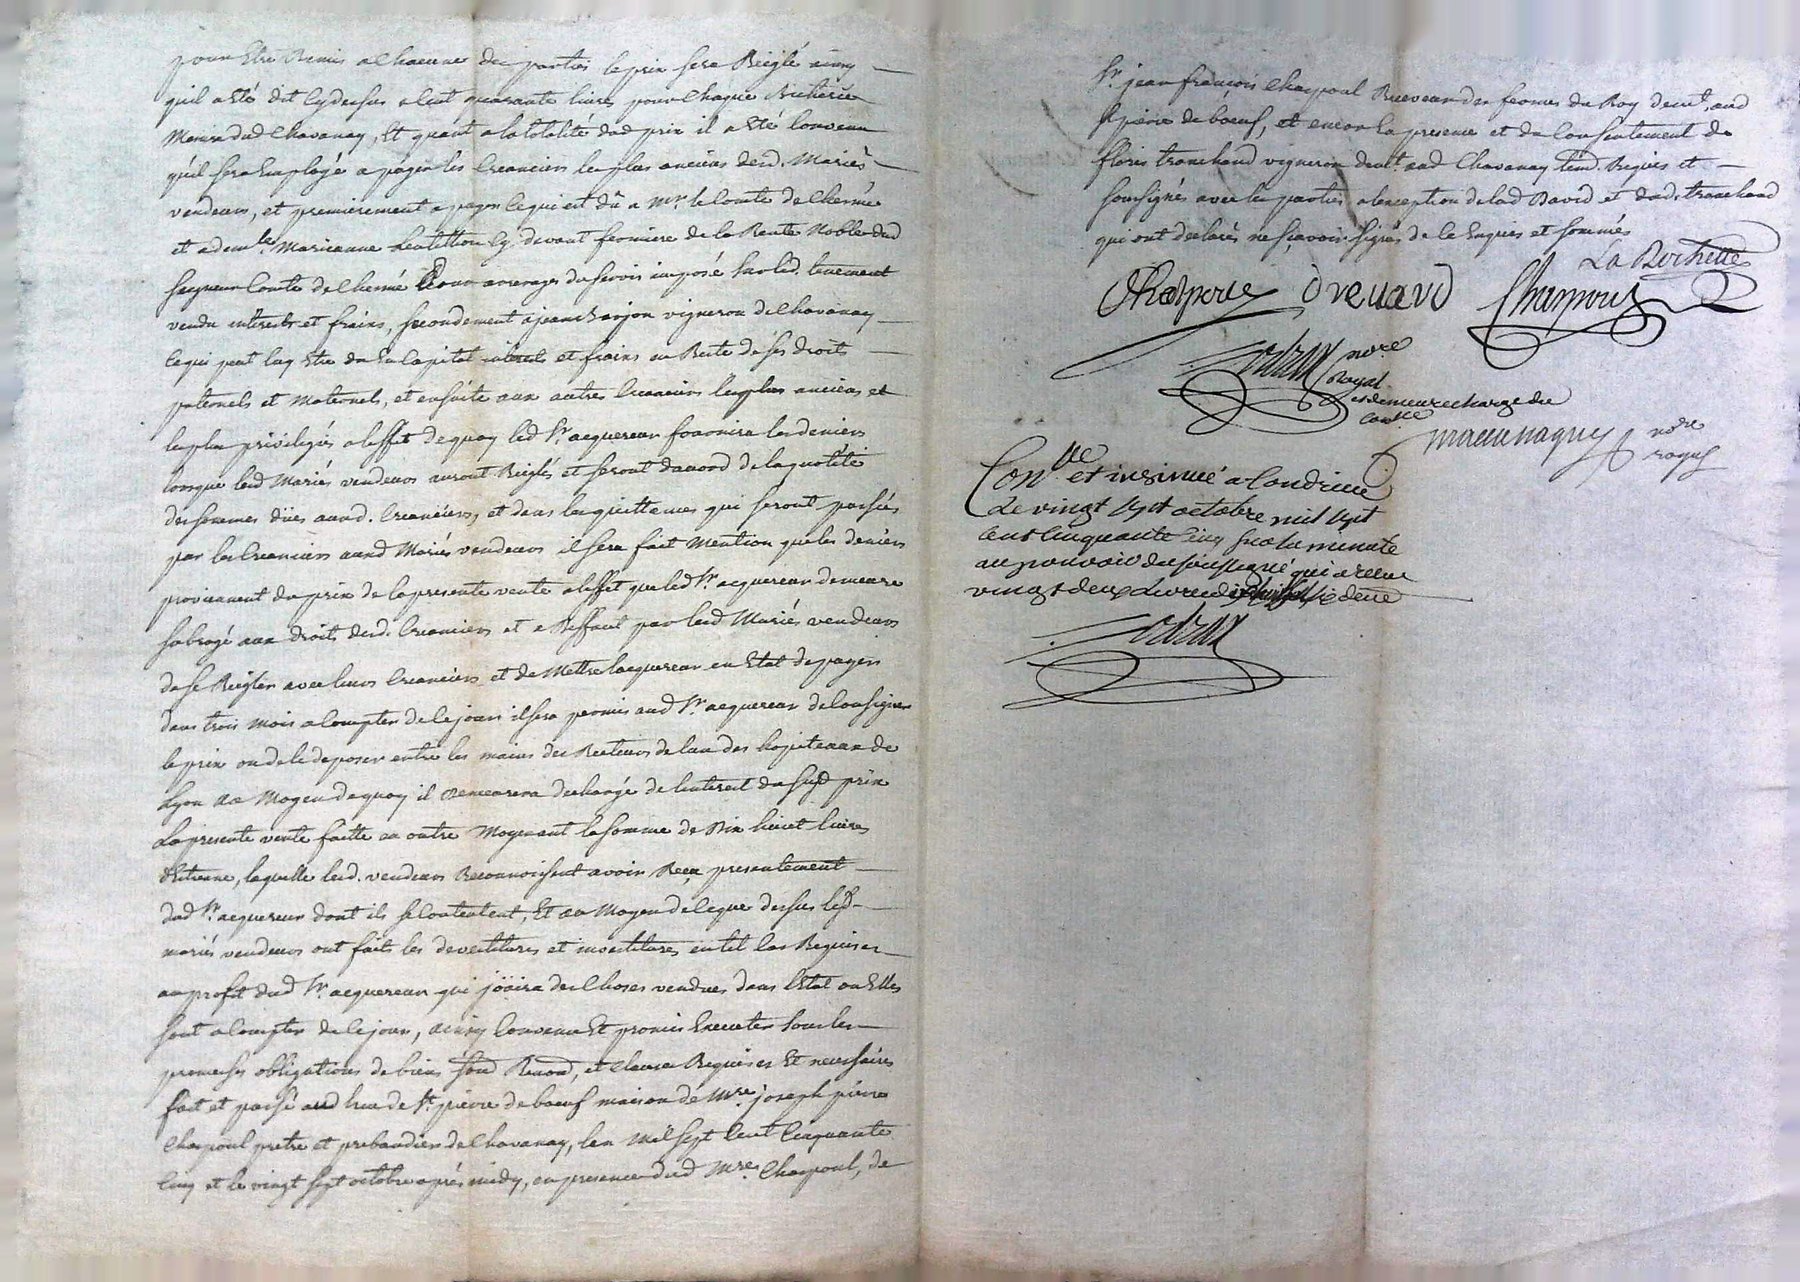 pour Etre Remis a Chacune des parties le prix sera Reiglé ainsy
quil a Eté dit Cy dessus a Cent quarante livres pour Chaque Bicherée
Mesure dud Chavanay, Et quant a la totalité dud prix il a Eté Convenu
quil sera Employé a payer les Creanciers les plus anciens desd. Mariés
vendeurs, et premierement a payer ce qui est dû a Mr. le Comte de
et a demlle. Marianne Cy devant fermiere de la Rente Noble dud
seigneur Comte de pour arrerages de servis imposé sur led. tenement
vendu interests et frais, secondement a jean vigneron de Chavanay
ce qui peut luy Etre du En Capital interets et frais en Reste de ses droits
paternels et Maternels, et ensuite aux autres Creanciers les plus anciens et
les plus privilegiés a leffet de quoy led Sr. acquereur fournira les deniers
lorsque lesd Mariés vendeurs auront Reiglés et seront daccord de la quotité
des sommes düës auxd. Creanciers, et dans les quittances qui seront passées
par les Creanciers auxd Mariés vendeurs il sera fait Mention que les deniers
proviennent du prix de la presente vente a leffet que led Sr. acquereur demeure
subrogé aux droits desd. Creanciers et a deffaut par lesd Mariés vendeurs
de se Reigler avec leurs Creanciers et de Mettre lacquereur en Etat de payer
dans trois Mois a Compter de ce jour il sera permis aud Sr. acquereur de Consigner
le prix ou de le deposer entre les mains des Recteurs de lun des hopiteaux de
Lyon au Moyen de quoy il demeurera dechargé de linterest du susd prix
La presente vente faitte en outre Moyenant la somme de Dix huict livres
dEtrenne, laquelle lesd. vendeurs Reconnoissent avoir Reçu presentement
dud Sr. acquereur dont ils se Contentent, Et au Moyen de ce que dessus lesd
mariés vendeurs ont fait les devestitures et investitures en tel Cas Requises
au profit dud Sr. acquereur qui joüira des Choses vendues dans lEtat ou Elles
sont a Compter de ce jour, ainsy Convenu Et promis Executer sous les
promesses obligations de biens, Renond, et Clauses Requises Et necessaires
fait et passé aud lieu de St. pierre de boeuf maison de Mre. joseph pierre
Chaspoul pretre et prebandier de Chavanay, lan Mil Sept Cent Cinquante
Cinq et le vingt Sept octobre aprés midy, en presence dud Mre. Chaspoul, de
Sr. jean françois Chaspoul Receveur des fermes du Roy demt. aud
St pierre de boeuf, et encor En presence et du Consentement de
floris tranchand vigneron demt. aud Chavanay tém. Requis et
soussignés avec les parties a lexception de lad David et dud. tranchand
qui ont declarés ne sçavoir signés de ce Enquis et sommés
La Rochette
Chaspoul Drevard Chaspoul
nore
Royal
et demeure charge du
conlle
nore
royal
Conlle et insinué a Condrieu
Le vingt Sept octobre mil Sept
Cent Cinquante Cinq sur la minute
au pouvoir du soussigné qui a receu
vingt deux Livres